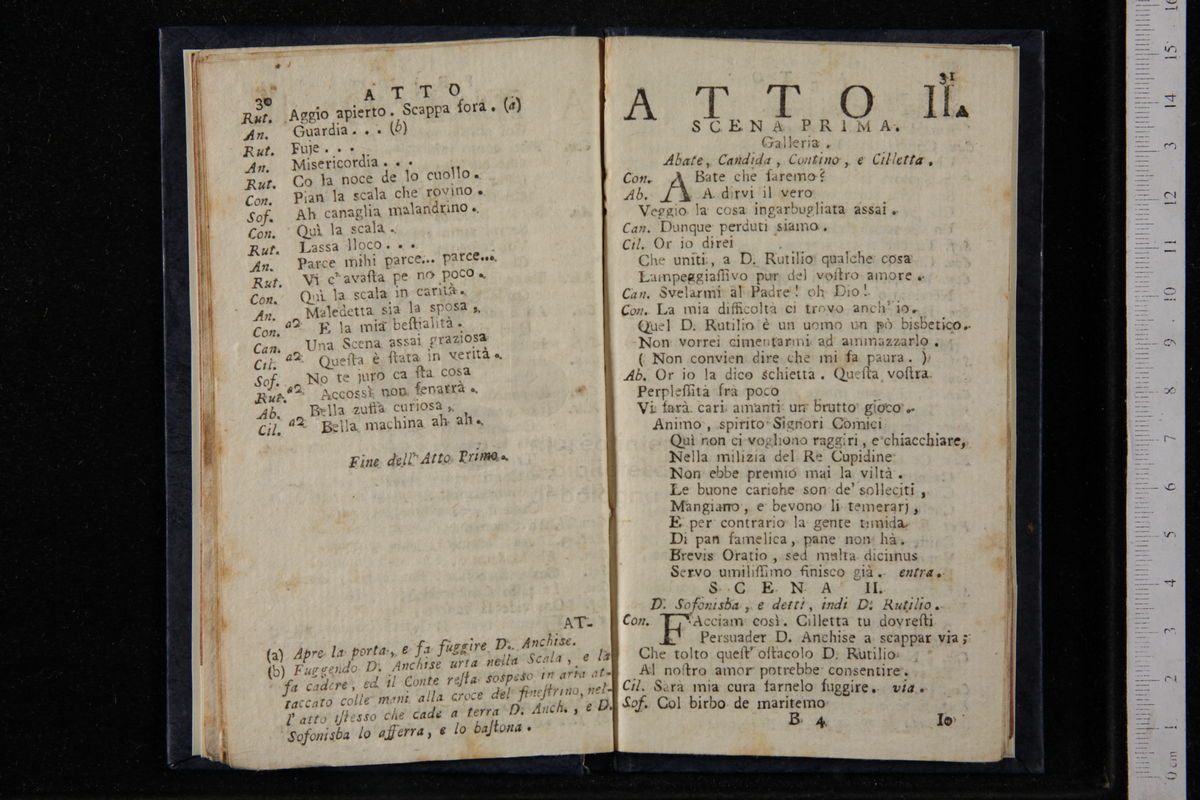 30 ATTO
Rut. Aggio apierto. Scappa fora. (a)
An. Guardia... (b)
Rut. Fuje...
An. Misericordia...
Rut. Co la noce de lo cuollo.
Con. Pian la scala che rovino.
Sof. Ah canaglia malandrino.
Con. Quì la scala.
Rut. Lassa lloco...
An. Parce mihi parce... parce...
Rut. Vi c'avaſta pe no poco.
Con. Quì la scala in carità.
An. Maledetta sia la sposa,
Con. a2 E la mia beſtialità.
Can. Una Scena assai graziosa
Cil. a2 Queſta è ſtata in verità.
Sof. No te juro ca ſta cosa
Rut. a2 Accossì non fenarrà.
Ab. Bella zuffa curiosa,
Cil. a2 Bella machina ah ah.
Fine dell' Atto Primo.
AT-
(a) Apre la porta, e fa fuggire D. Anchise.
(b) Fuggendo D. Anchise urta nella Scala, e la
fa cadere, ed il Conte reſta sospeso in aria at-
taccato colle mani alla croce del fineſtrino, nel-
l'atto iſtesso che cade a terra D. Anch., e D.
Sofonisba lo afferra, e lo baſtona.
31
ATTO II.
SCENA PRIMA.
Galleria.
Abate, Candida, Contino, e Cilletta.
Con. ABate che faremo?
Ab. A dirvi il vero
Veggio la cosa ingarbugliata assai.
Can. Dunque perduti siamo.
Cil. Or io direi
Che uniti, a D. Rutilio qualche cosa
Lampeggiaſſivo pur del voſtro amore.
Can. Svelarmi al Padre! oh Dio!
Con. La mia difficoltà ci trovo anch' io.
Quel D. Rutilio è un uomo un pò bisbetico.
Non vorrei cimentarmi ad ammazzarlo.
( Non convien dire che mi fa paura. )
Ab. Or io la dico schietta. Queſta voſtra
Perpleſſità fra poco
Vi farà cari amanti un brutto gioco.
Animo, spirito Signori Comici
Quì non ci vogliono raggiri, e chiacchiare,
Nella milizia del Re Cupidine
Non ebbe premio mai la viltà.
Le buone cariche son de' solleciti,
Mangiano, e bevono li temerarj,
E per contrario la gente timida
Di pan famelica, pane non hà.
Brevis Oratio, sed multa dicimus
Servo umiliſſimo finisco già. entra.
SCENA II.
D. Sofonisba, e detti, indi D. Rutilio.
Con. FAcciam così. Cilletta tu dovreſti
Persuader D. Anchise a scappar via;
Che tolto queſt' oſtacolo D. Rutilio
Al noſtro amor potrebbe consentire.
Cil. Sarà mia cura farnelo fuggire. via.
Sof. Col birbo de maritemo
B 4 Io